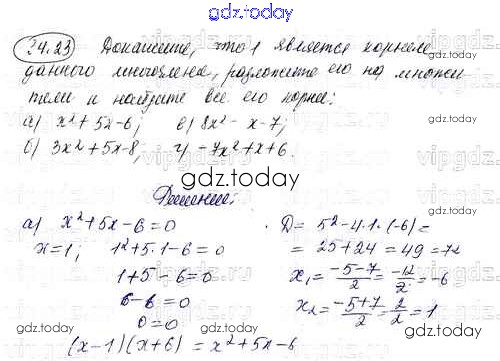 gdz.today
24.23 Докажите, что 1 является корнем
данного многочлена, разложите его на множи
тели и найдите все его корни:
а) x²+5x-6; в) 8x²-x-7;
б) 3x²+5x-8; г) -7x²+x+6.
gdz.today
Решение:
а) x²+5x-6=0
x=1; 1²+5·1-6=0
1+5-6=0
6-6=0
0=0
(x-1)(x+6)=x²+5x-6
D=5²-4·1·(-6)=
=25+24=49=7²
x₁=(-5-7)/2=-12/2=-6
x₂=(-5+7)/2=2/2=1
gdz.today
gdz.today
gdz.today